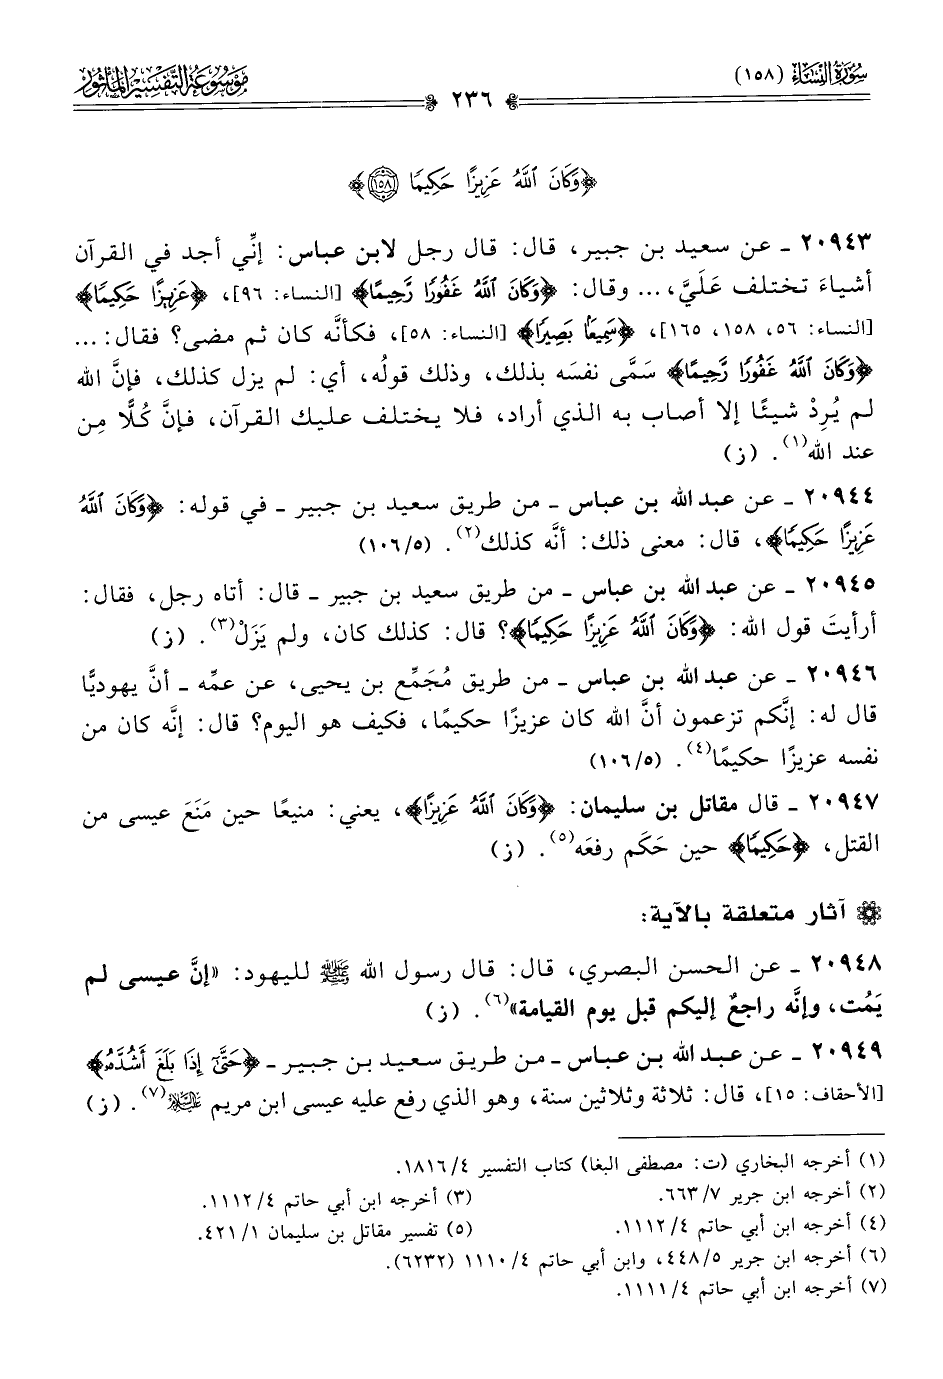 سُورَةُ النِّسَاءِ (١٥٨)
مَوْسُوعَةُ التَّفْسِيرِ المَأْثُورِ
٢٣٦
﴿وَكَانَ ٱللَّهُ عَزِيزًا حَكِيمًا ١٥٨﴾
٢٠٩٤٣ ـ عن سعيد بن جبير، قال: قال رجل لابن عباس: إنِّي أجد في القرآن
أشياءَ تختلف عَلَيَّ، ... وقال: ﴿وَكَانَ ٱللَّهُ غَفُورًا رَّحِيمًا﴾ [النساء: ٩٦]، ﴿عَزِيزًا حَكِيمًا﴾
[النساء: ٥٦، ١٥٨، ١٦٥]، ﴿سَمِيعًا بَصِيرًا﴾ [النساء: ٥٨]، فكأنَّه كان ثم مضى؟ فقال: ...
﴿وَكَانَ ٱللَّهُ غَفُورًا رَّحِيمًا﴾ سَمَّى نفسَه بذلك، وذلك قولُه، أي: لم يزل كذلك، فإنَّ الله
لم يُرِدْ شيئًا إلا أصاب به الذي أراد، فلا يختلف عليك القرآن، فإنَّ كُلًّا مِن
عند الله(١). (ز)
٢٠٩٤٤ ـ عن عبد الله بن عباس ـ من طريق سعيد بن جبير ـ في قوله: ﴿وَكَانَ ٱللَّهُ
عَزِيزًا حَكِيمًا﴾، قال: معنى ذلك: أنَّه كذلك(٢). (١٠٦/٥)
٢٠٩٤٥ ـ عن عبد الله بن عباس ـ من طريق سعيد بن جبير ـ قال: أتاه رجل، فقال:
أرأيتَ قول الله: ﴿وَكَانَ ٱللَّهُ عَزِيزًا حَكِيمًا﴾؟ قال: كذلك كان، ولم يَزَلْ(٣). (ز)
٢٠٩٤٦ ـ عن عبد الله بن عباس ـ من طريق مُجَمِّع بن يحيى، عن عمِّه ـ أنَّ يهوديًّا
قال له: إنَّكم تزعمون أنَّ الله كان عزيزًا حكيمًا، فكيف هو اليوم؟ قال: إنَّه كان من
نفسه عزيزًا حكيمًا(٤). (١٠٦/٥)
٢٠٩٤٧ ـ قال مقاتل بن سليمان: ﴿وَكَانَ ٱللَّهُ عَزِيزًا﴾، يعني: منيعًا حين مَنَعَ عيسى من
القتل، ﴿حَكِيمًا﴾ حين حَكَم رفعَه(٥). (ز)
آثار متعلقة بالآية:
٢٠٩٤٨ ـ عن الحسن البصري، قال: قال رسول الله ﷺ لليهود: «إنَّ عيسى لم
يَمُت، وإنَّه راجعٌ إليكم قبل يوم القيامة»(٦). (ز)
٢٠٩٤٩ ـ عن عبد الله بن عباس ـ من طريق سعيد بن جبير ـ ﴿حَتَّىٰٓ إِذَا بَلَغَ أَشُدَّهُۥ﴾
[الأحقاف: ١٥]، قال: ثلاثة وثلاثين سنة، وهو الذي رفع عليه عيسى ابن مريم ﵇(٧). (ز)
(١) أخرجه البخاري (ت: مصطفى البغا) كتاب التفسير ١٨١٦/٤.
(٢) أخرجه ابن جرير ٦٦٣/٧. (٣) أخرجه ابن أبي حاتم ١١١٢/٤.
(٤) أخرجه ابن أبي حاتم ١١١٢/٤. (٥) تفسير مقاتل بن سليمان ٤٢١/١.
(٦) أخرجه ابن جرير ٤٤٨/٥، وابن أبي حاتم ١١١٠/٤ (٦٢٣٢).
(٧) أخرجه ابن أبي حاتم ١١١١/٤.